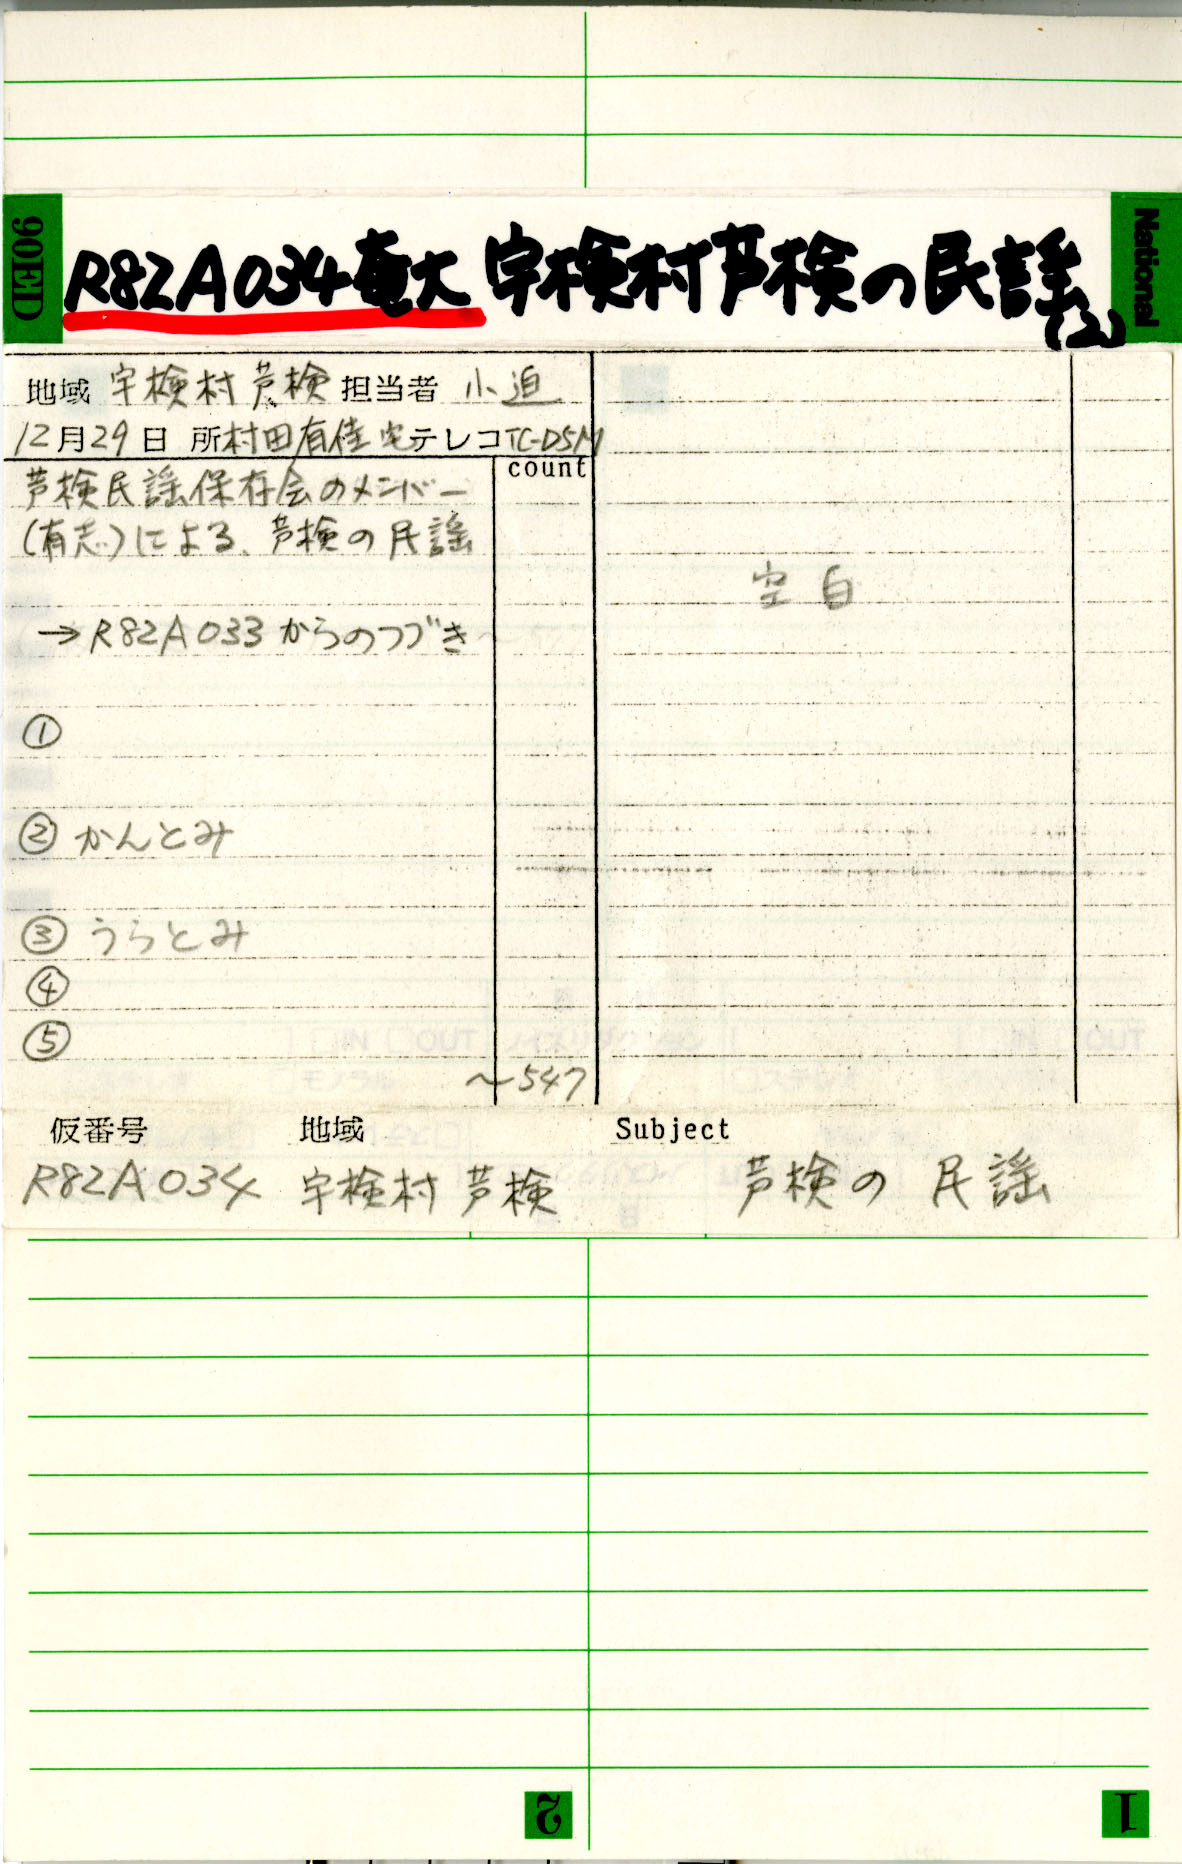 90ED
R82A034奄大 宇検村芦検の民謡(2)
National
地域 宇検村芦検 担当者 小迫
12月29日 所村田有佳宅テレコTC-D5M
count
芦検民謡保存会のメンバー
(有志)による、芦検の民謡
→R82A033からのつづき
①
②かんとみ
③うらとみ
④
⑤
〜547
空白
仮番号 地域 Subject
R82A034 宇検村芦検 芦検の民謡
2 1